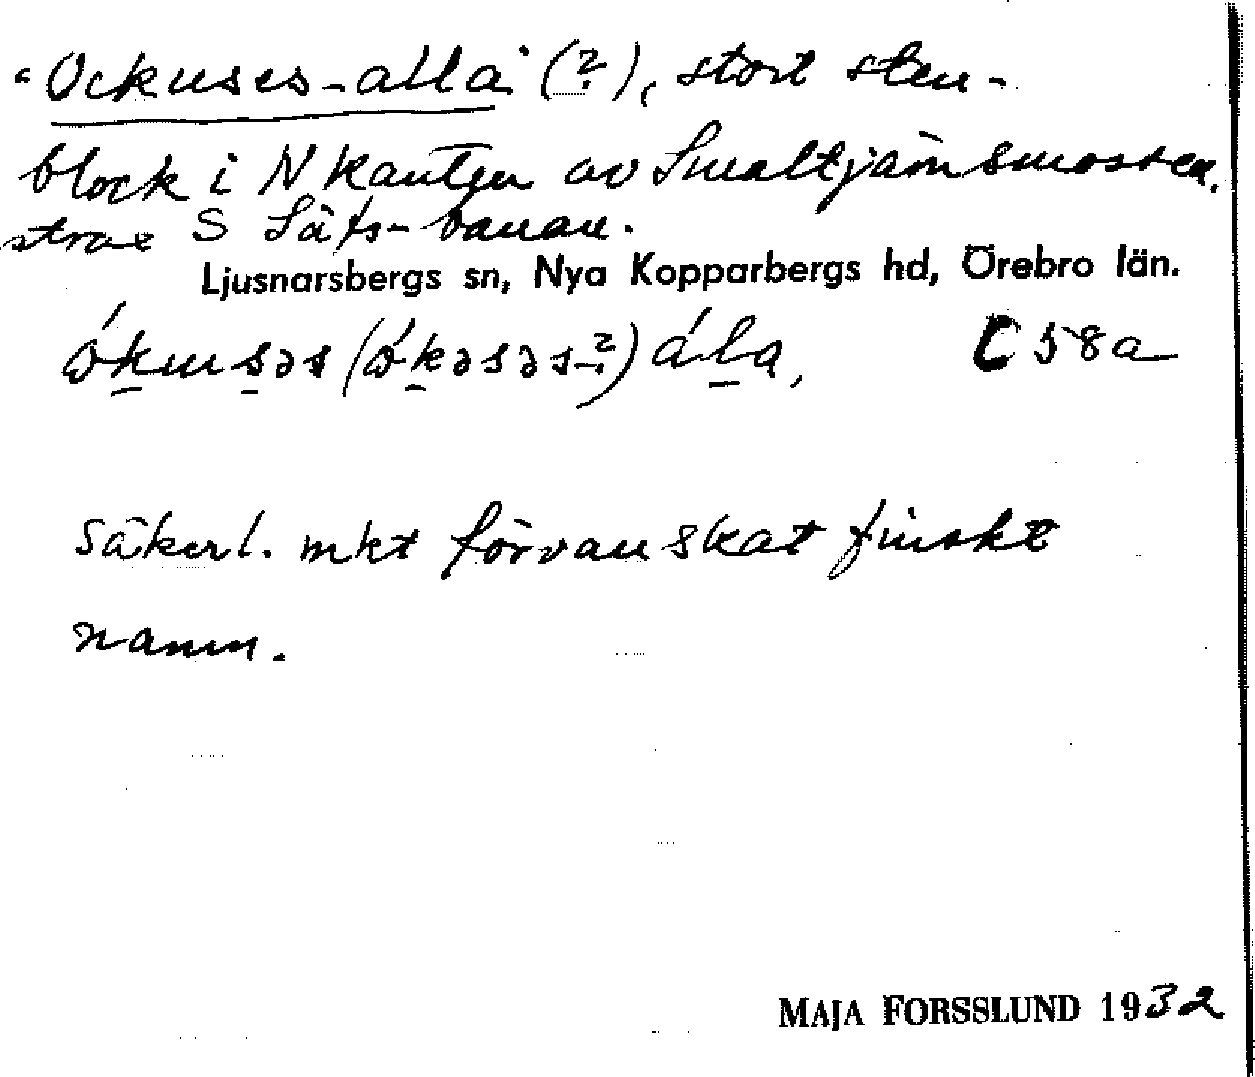 "Ockuses-alla" (?), stort sten-
block i N kanten av Smaltjärnsmossen,
strax S Säfs-banan.
Ljusnarsbergs sn, Nya Kopparbergs hd, Örebro län.
ókusəs (ókəsəs-?) ála, C 58a
Säkerl. mkt förvanskat finskt
namn.
MAJA FORSSLUND 1932